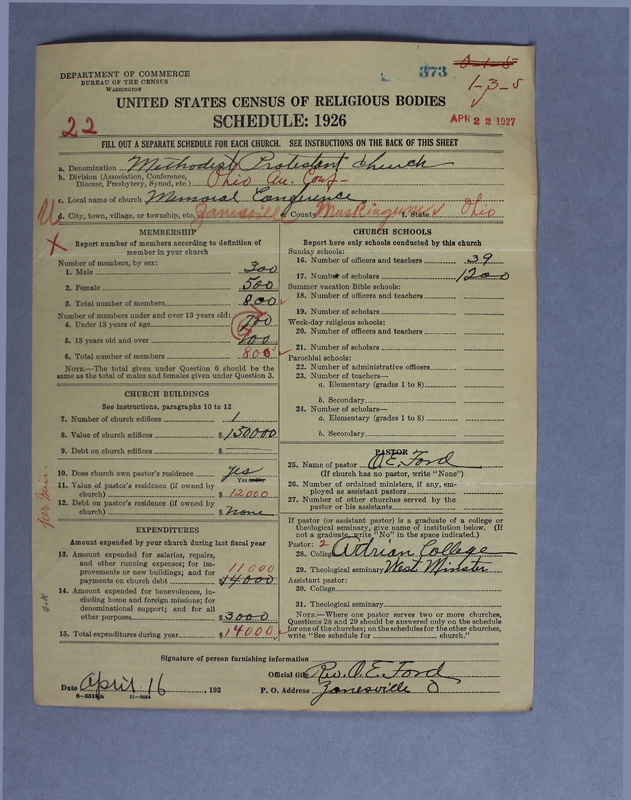 DEPARTMENT OF COMMERCE
BUREAU OF THE CENSUS
WASHINGTON
373
0-1-5
1-3-5
UNITED STATES CENSUS OF RELIGIOUS BODIES
SCHEDULE: 1926
22
APR 22 1927
FILL OUT A SEPARATE SCHEDULE FOR EACH CHURCH. SEE INSTRUCTIONS ON THE BACK OF THIS SHEET
a. Denomination Methodist Protestant Church
b. Division (Association, Conference, Diocese, Presbytery, Synod, etc.) Ohio An. Conf-
c. Local name of church Memorial Conference
d. City, town, village, or township, etc. Zanesville e. County Muskingum f. State Ohio
MEMBERSHIP
Report number of members according to definition of
member in your church
Number of members, by sex:
1. Male 300
2. Female 500
3. Total number of members 800
Number of members under and over 13 years old:
4. Under 13 years of age 200
5. 13 years old and over 600
6. Total number of members 800
NOTE.—The total given under Question 6 should be the
same as the total of males and females given under Question 3.
CHURCH BUILDINGS
See instructions, paragraphs 10 to 12
7. Number of church edifices 1
8. Value of church edifices $150000
9. Debt on church edifices $
10. Does church own pastor's residence yes
Yes or No
11. Value of pastor's residence (if owned by
church) $12000
12. Debt on pastor's residence (if owned by
church) $None
EXPENDITURES
Amount expended by your church during last fiscal year
13. Amount expended for salaries, repairs,
and other running expenses; for im-
provements or new buildings; and for
payments on church debt 11000 $14000
14. Amount expended for benevolences, in-
cluding home and foreign missions; for
denominational support; and for all
other purposes $3000
15. Total expenditures during year $14000
CHURCH SCHOOLS
Report here only schools conducted by this church
Sunday schools:
16. Number of officers and teachers 39
17. Number of scholars 1200
Summer vacation Bible schools:
18. Number of officers and teachers
19. Number of scholars
Week-day religious schools:
20. Number of officers and teachers
21. Number of scholars
Parochial schools:
22. Number of administrative officers
23. Number of teachers—
a. Elementary (grades 1 to 8)
b. Secondary
24. Number of scholars—
a. Elementary (grades 1 to 8)
b. Secondary
PASTOR
25. Name of pastor O E. Ford
(If church has no pastor, write "None")
26. Number of ordained ministers, if any, em-
ployed as assistant pastors
27. Number of other churches served by the
pastor or his assistants
If pastor (or assistant pastor) is a graduate of a college or
theological seminary, give name of institution below. (If
not a graduate, write "No" in the space indicated.)
Pastor: 2
28. College Adrian College
29. Theological seminary West Minster
Assistant pastor:
30. College
31. Theological seminary
NOTE.—Where one pastor serves two or more churches,
Questions 28 and 29 should be answered only on the schedule
for one of the churches; on the schedules for the other churches,
write "See schedule for church."
Signature of person furnishing information
Official title Rev. O. E. Ford
Date April 16, 192 P. O. Address Zanesville O